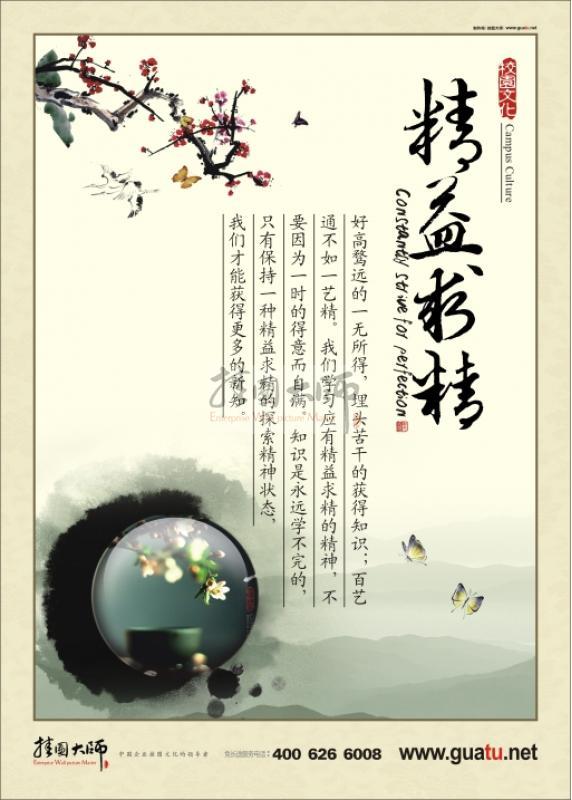 www.guatu.net
校园文化
Campus Culture
精益求精
Constantly strive for perfection
好高骛远的一无所得，埋头苦干的获得知识；百艺
通不如一艺精。我们学习应有精益求精的精神，不
要因为一时的得意而自满。知识是永远学不完的，
只有保持一种精益求精的探索精神状态，
我们才能获得更多的新知。
挂图大师
Enterprise Wall picture Master
挂图大师
Enterprise Wall picture Master
中国企业挂图文化的领导者
400 626 6008
www.guatu.net